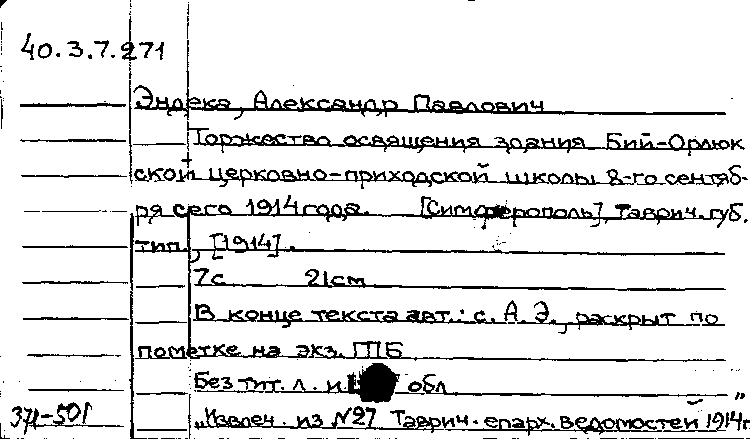 40.3.7.271
Эндека, Александр Павлович
Торжество освящения здания Бий-Орлюк
ской церковно-приходской школы 8-го сентяб-
ря сего 1914 года. [Симферополь], Таврич. губ.
тип., [1914].
7с 21см
В конце текста авт.: с. А. Э., раскрыт по
пометке на экз. ГПБ
Без тит. л. и обл
371-501 „Извлеч. из №27 Таврич. епарх. ведомостей 1914г.”